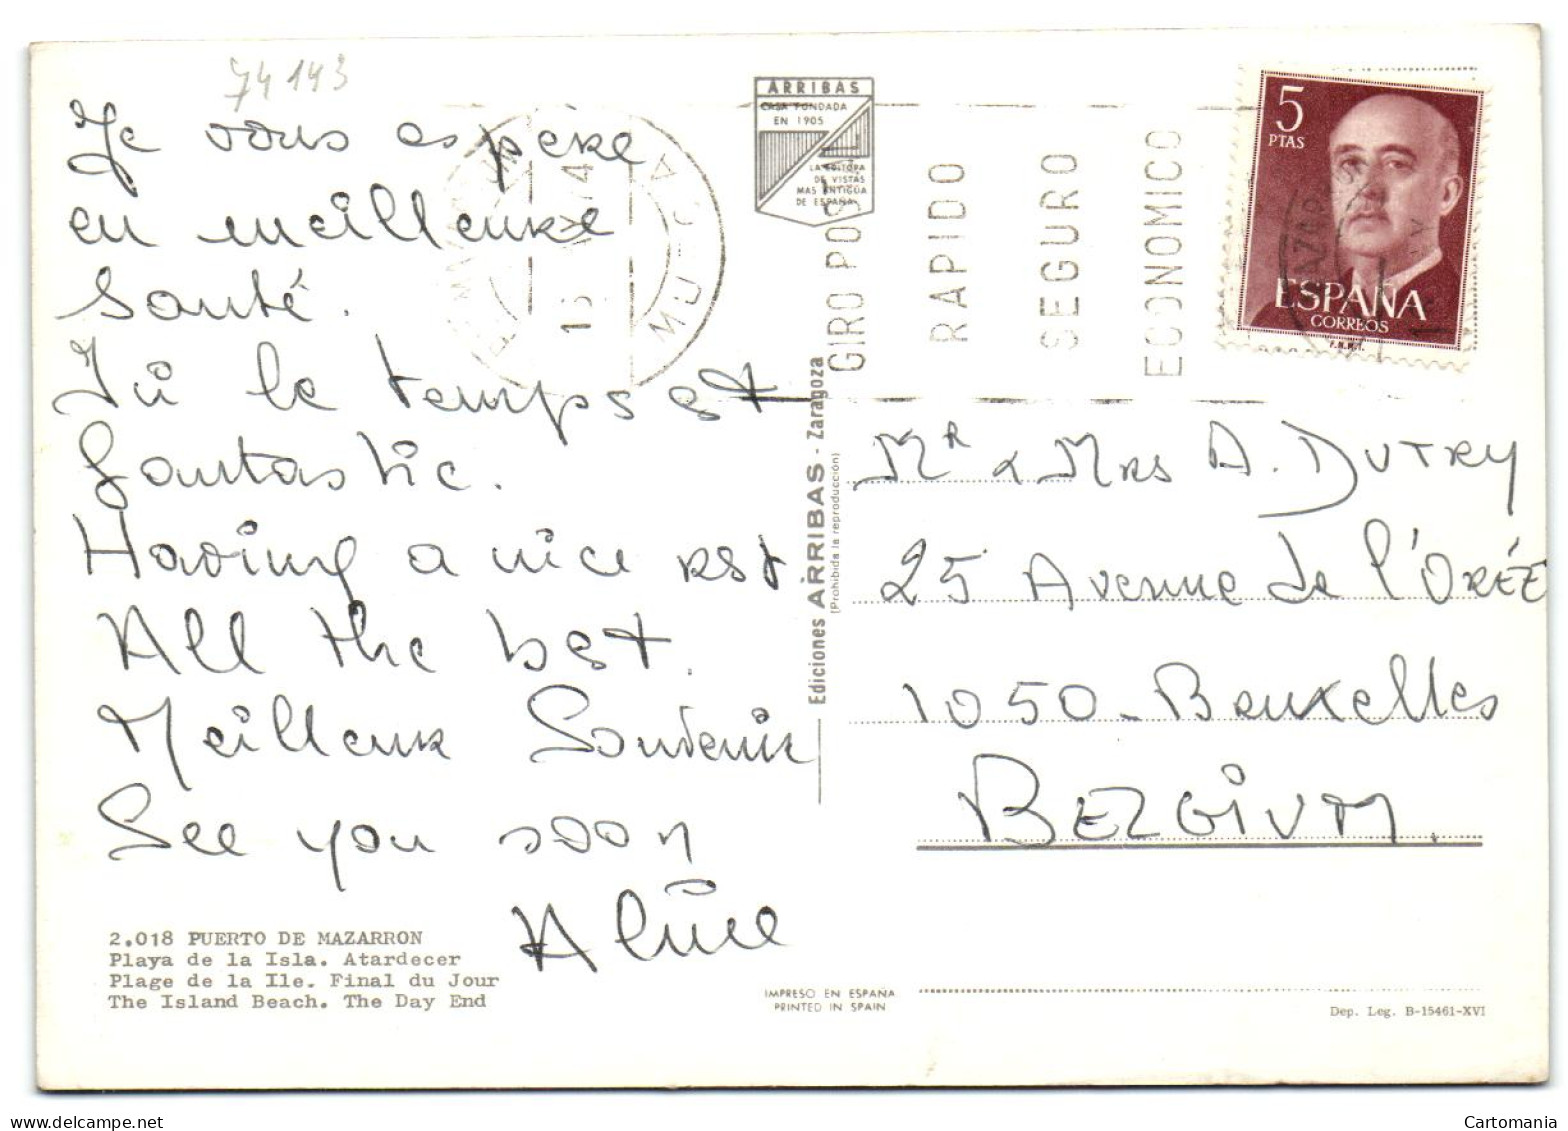 74143
Je vous espere
en meilleure
Santé.
Ici le temps est
fantastic.
Having a nice rest
All the best.
Meilleur Souvenir
See you soon
Aline
2.018 PUERTO DE MAZARRON
Playa de la Isla. Atardecer
Plage de la Ile. Final du Jour
The Island Beach. The Day End
ARRIBAS
CASA FUNDADA
EN 1905
LA EDITORA
DE VISTAS
MAS ANTIGUA
DE ESPAÑA
Ediciones ARRIBAS - Zaragoza
(Prohibida la reproducción)
GIRO POSTAL
RAPIDO
SEGURO
ECONOMICO
5
PTAS
ESPAÑA
CORREOS
F.N.M.T.
Mr & Mrs A. DUTRY
25 Avenue de l'ORÉE
1050 - Bruxelles
BELGIUM.
IMPRESO EN ESPAÑA
PRINTED IN SPAIN
Dep. Leg. B-15461-XVI
delcampe.net
Cartomania